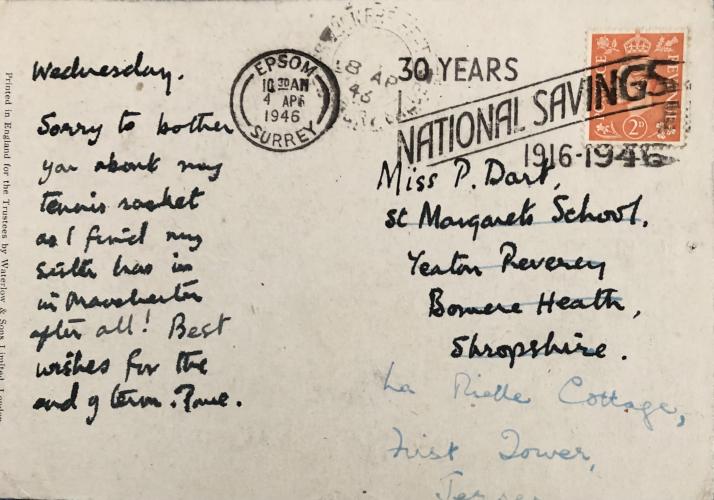 Wednesday.
Sorry to bother
you about my
tennis racket
as I find my
sister has in
in Manchester
after all! Best
wishes for the
end of term.
Printed in England for the Trustees by Waterlow & Sons Limited, London
EPSOM
10 30 AM
4 APR
1946
SURREY
8 AP
46
30 YEARS
NATIONAL SAVINGS
1916-1946
2D
Miss P. Dart,
St Margarets School,
Yeaton Peverey
Bomere Heath,
Shropshire.
La Cottage,
First Tower,
Jersey